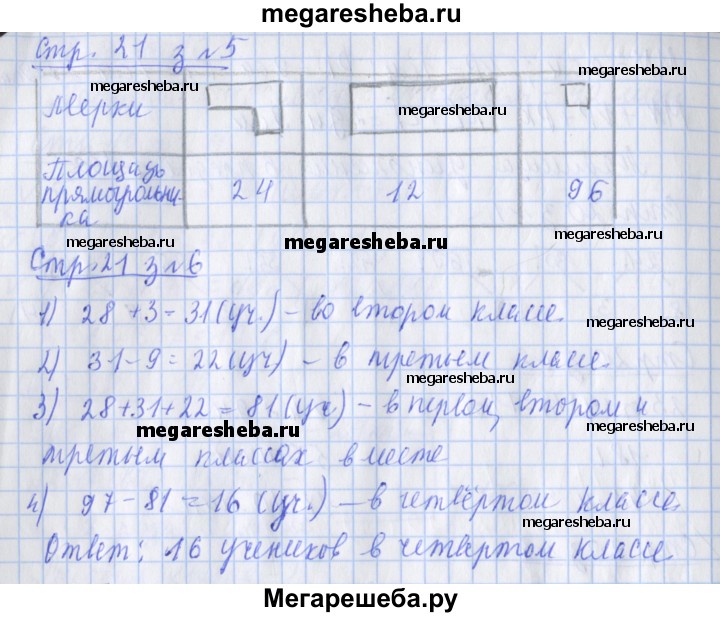 megaresheba.ru
Стр. 21 з №5
megaresheba.ru
megaresheba.ru
Мерки
Площадь прямоугольника
24
12
96
megaresheba.ru
megaresheba.ru
megaresheba.ru
Стр. 21 з №6
1) 28 + 3 = 31 (уч.) - во втором классе.
megaresheba.ru
2) 31 - 9 = 22 (уч) - в третьем классе.
3) 28 + 31 + 22 = 81 (уч) - в первом, втором и
megaresheba.ru
megaresheba.ru
третьем классах вместе
4) 97 - 81 = 16 (уч.) - в четвёртом классе.
megaresheba.ru
Ответ: 16 учеников в четвёртом классе
Мегарешеба.ру